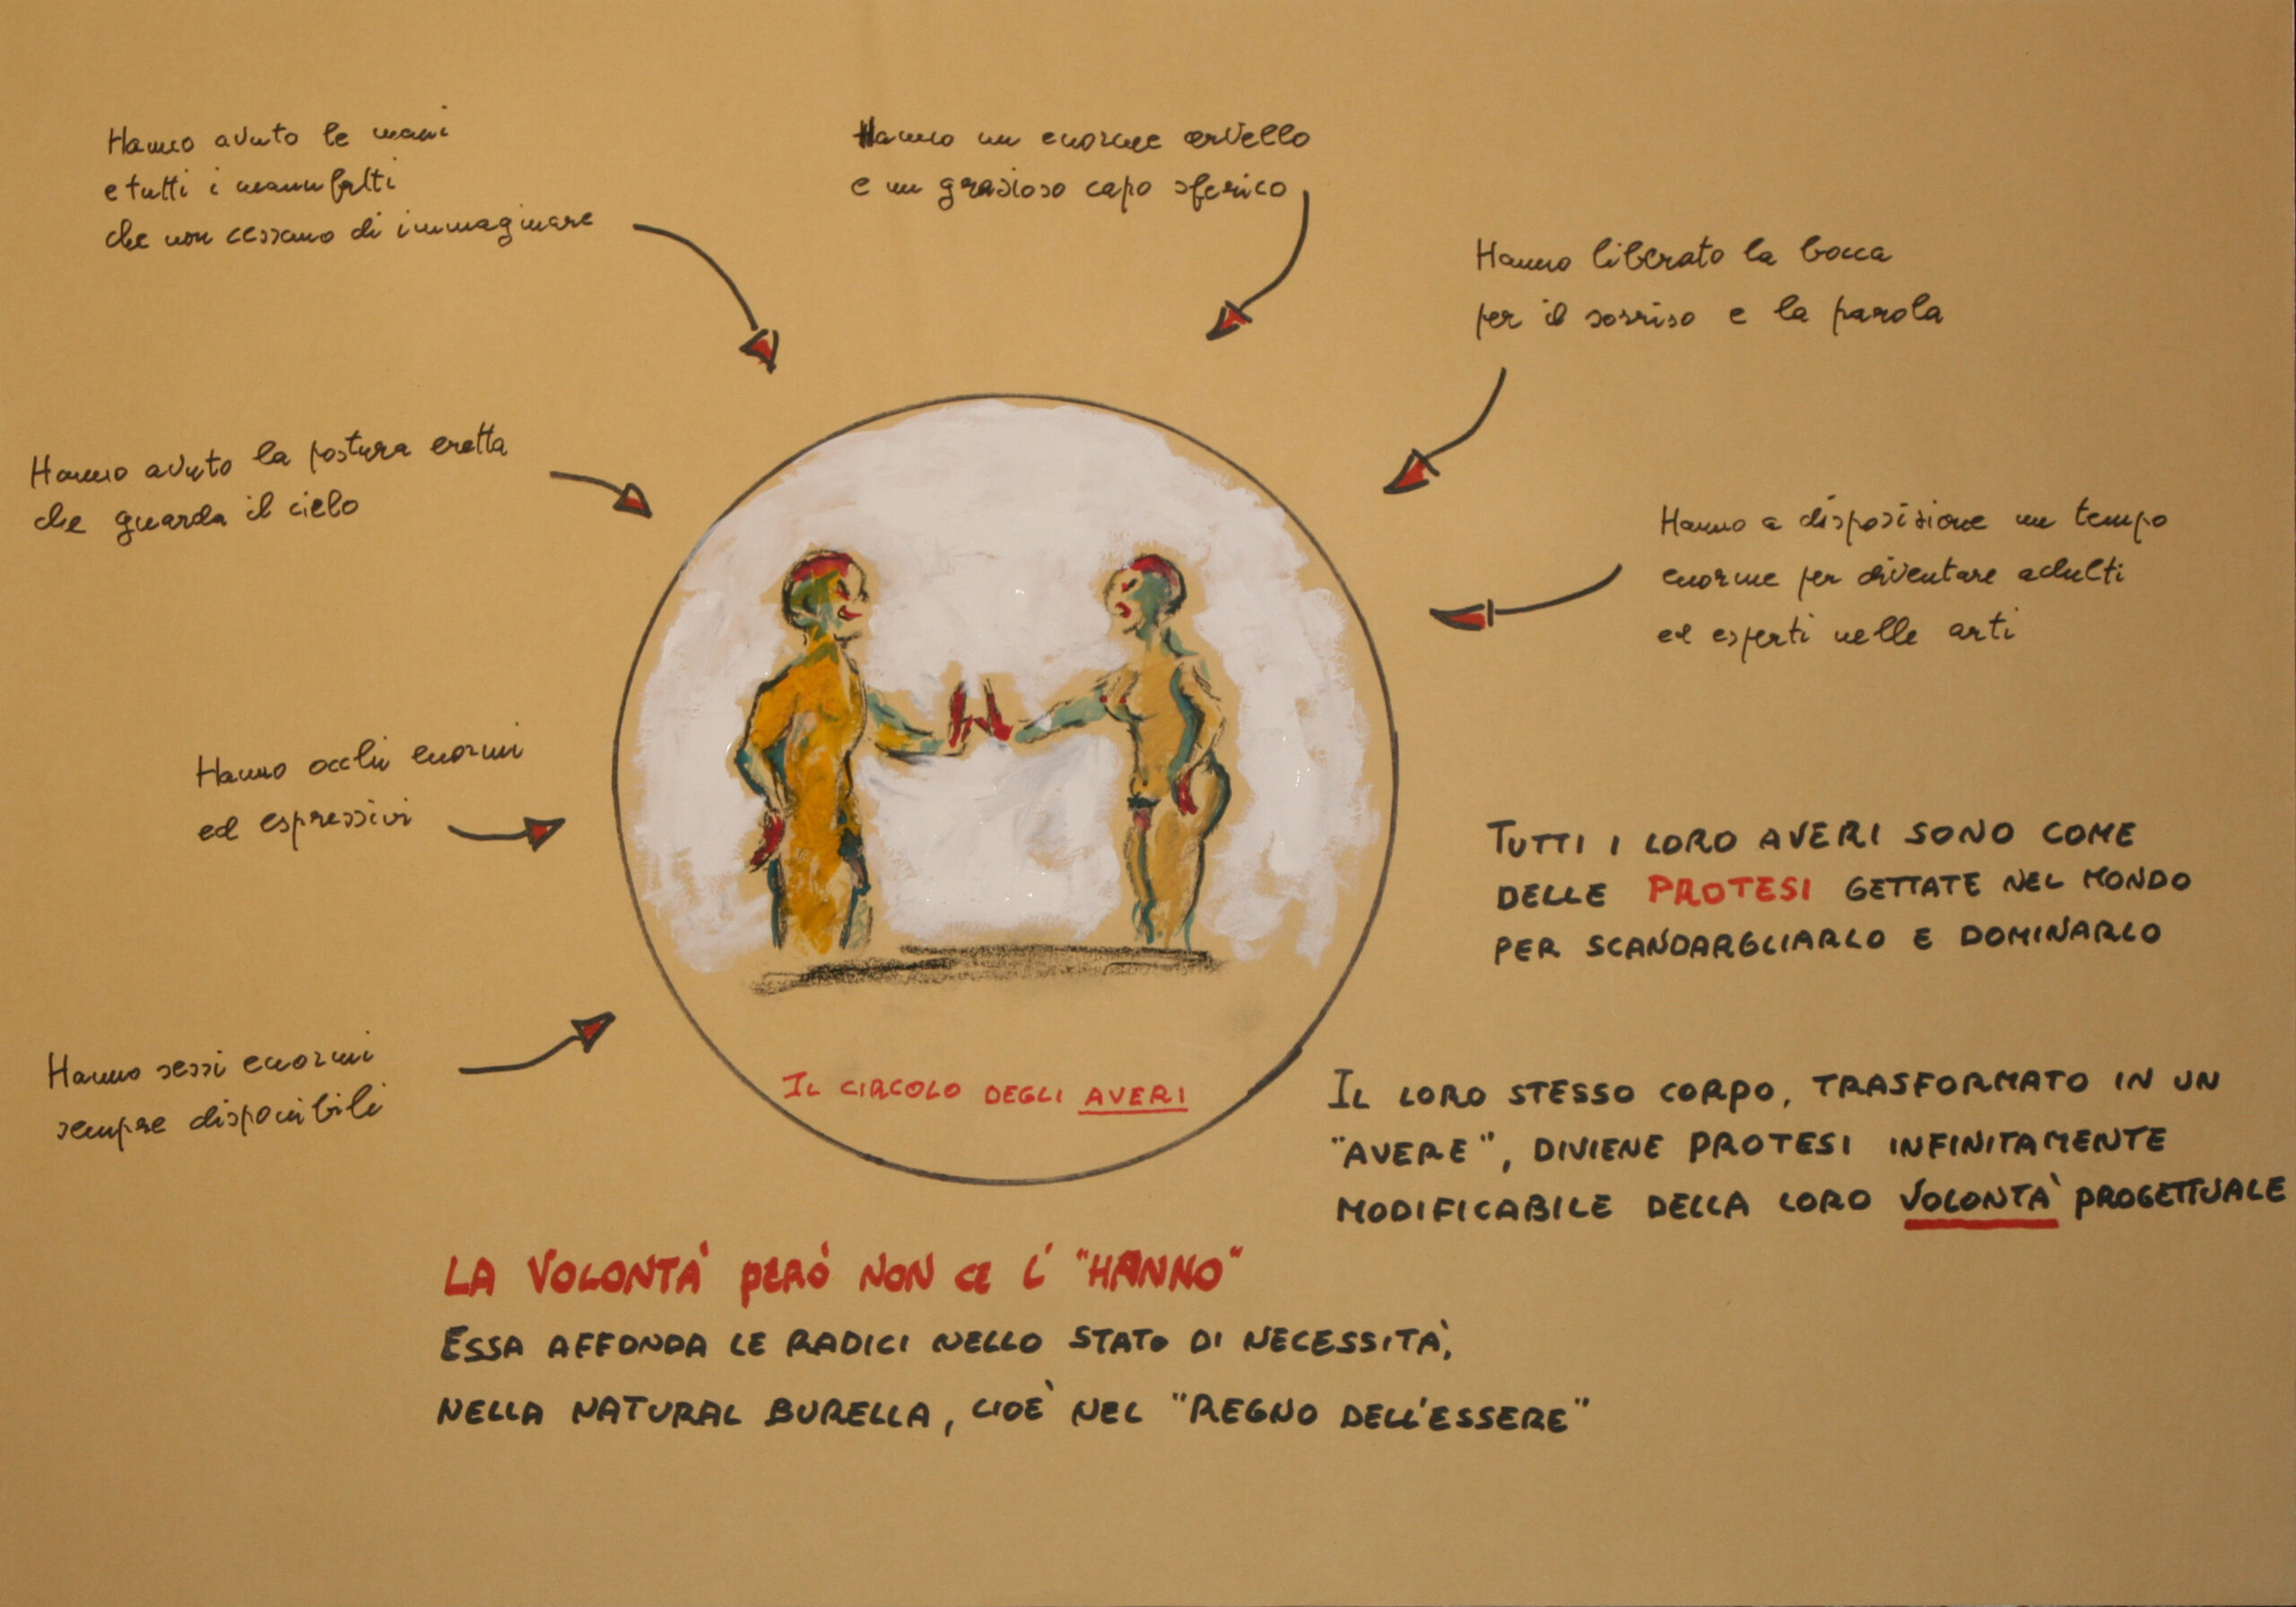 Hanno avuto le mani
e tutti i manufatti
che non cessano di immaginare
Hanno un enorme cervello
e un grazioso capo sferico
Hanno liberato la bocca
per il sorriso e la parola
Hanno avuto la postura eretta
che guarda il cielo
Hanno a disposizione un tempo
enorme per diventare adulti
ed esperti nelle arti
Hanno occhi enormi
ed espressivi
Hanno sessi enormi
sempre disponibili
IL CIRCOLO DEGLI AVERI
TUTTI I LORO AVERI SONO COME
DELLE PROTESI GETTATE NEL MONDO
PER SCANDARGLIARLO E DOMINARLO
IL LORO STESSO CORPO, TRASFORMATO IN UN
"AVERE", DIVIENE PROTESI INFINITAMENTE
MODIFICABILE DELLA LORO VOLONTÀ PROGETTUALE
LA VOLONTÀ PERÒ NON CE L' "HANNO"
ESSA AFFONDA LE RADICI NELLO STATO DI NECESSITÀ,
NELLA NATURAL BURELLA, CIOÈ NEL "REGNO DELL'ESSERE"